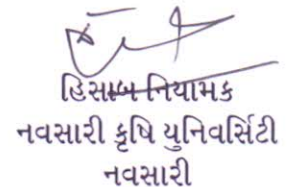 હિસાબ નિયામક
નવસારી કૃષિ યુનિવર્સિટી
નવસારી